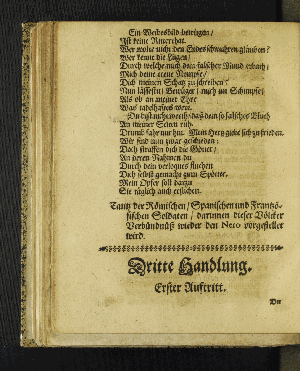 Ein Weibesbild betrügen/
Ist keine Uneerthat.
Wer wolte mehr den Liebesschwuhren gläuben?
Wer kennt die Lügen/
Durch welche mich dein falscher Mund erbath;
Mich deine treue Nimpfe/
Dich meinen Schatz zu schreiben?
Nun lästerstu/ Betrüger/ noch im Schimpfe/
Als ob an meiner Ehre
Was tadelhaftes were.
Du bist nicht werth/ daß dein so falsches Bluth
An meiner Seiten ruh.
Drumb fahr nur hin. Mein Hertz giebt sich zu frieden.
Wir sind nun zwar geschieden;
Doch straffen dich die Götter/
An deren Nahmen du
Durch dein verlognes fluchen
Dich selbst gemacht zum Spötter.
Mein Opfer soll darzu
Sie täglich auch ersuchen.
Tantz der Römischen/ Spanischen und Frantzö-
sischen Soldaten/ darinnen dieser Völcker
Verbündnüß wieder den Nero vorgestellet
wird.
Dritte Handlung.
Erster Auftritt.
Der